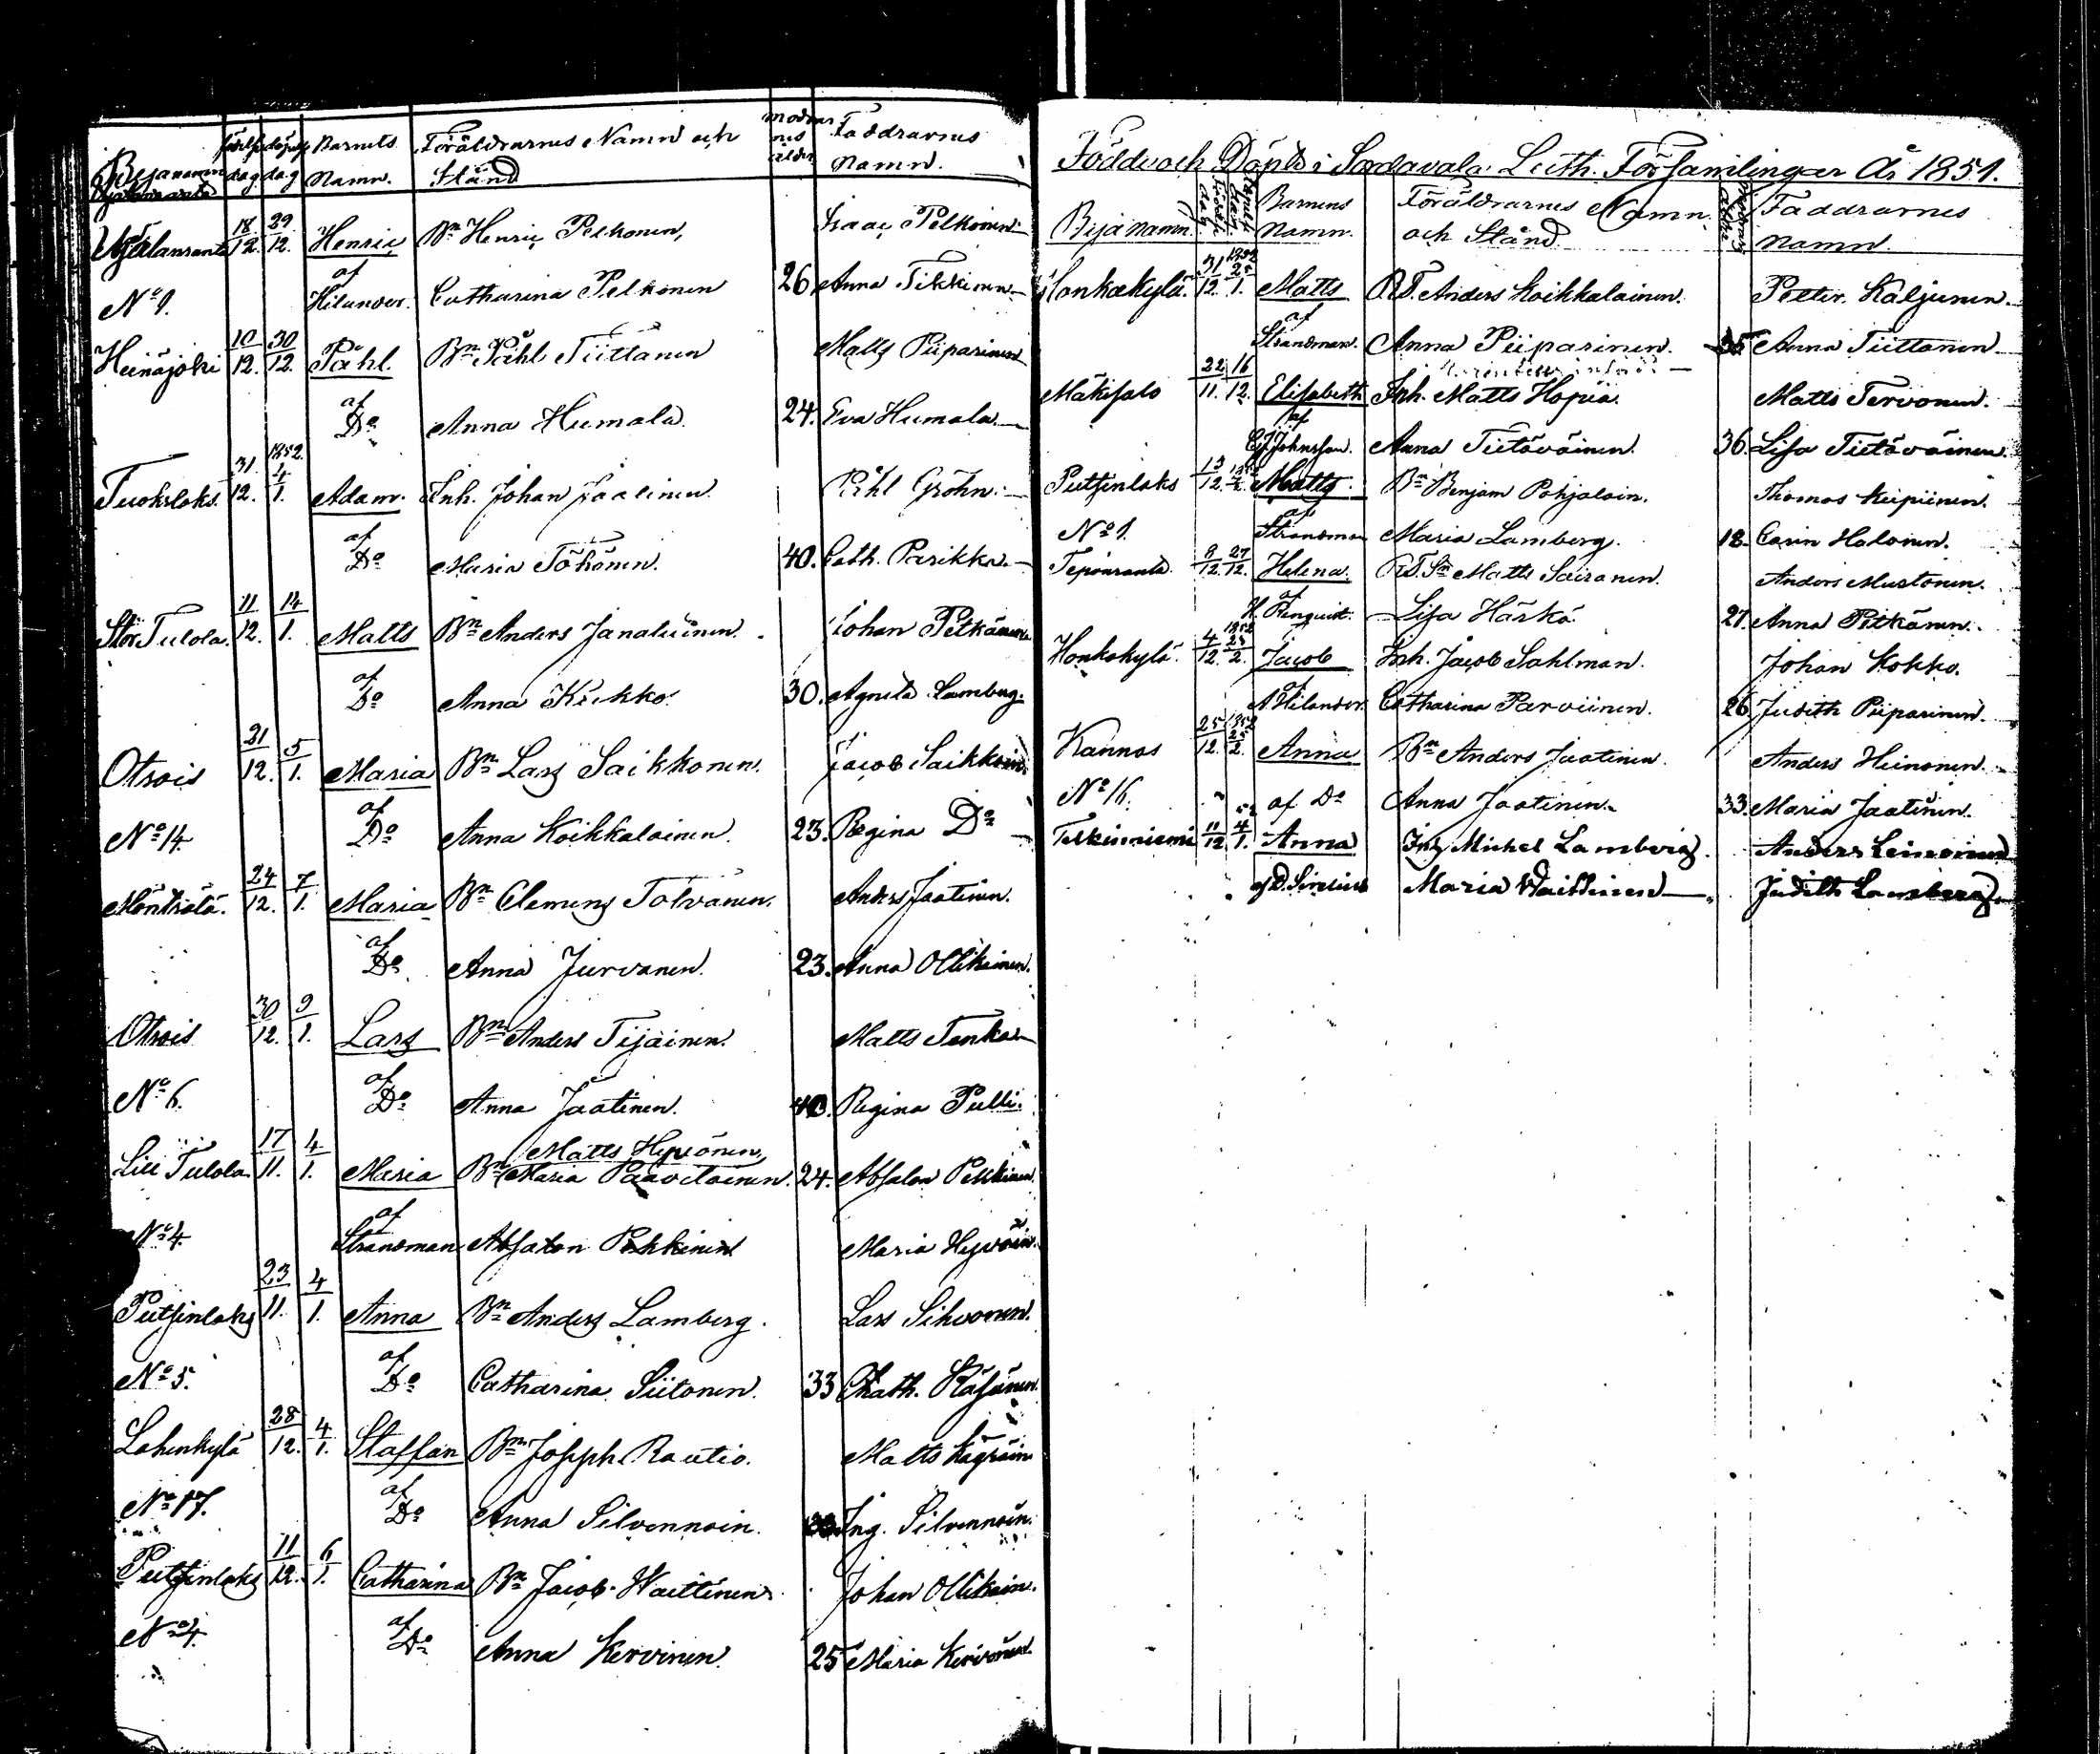 Byanamn födelse dag döpelse dag Barnets Namn. Föräldrarnes Namn och Stånd modrens ålder Faddrarnes Namn.
18/12. 29/12. Henric Bn Henric Pelkonen, Isaac Pelkonen
No 1. af Hilander. Catharina Pelkonen 26. Anna Tikkinen
Heinäjoki 10/12. 30/12. Påhl. Bn Påhl Tiittanen Matts Piiparinen
af Do Anna Humala. 24. Eva Humala.
Tuokslaks. 31./12. 1852. 4/1. Adam. Inh. Johan Jaalinen. Påhl Gröhn.
af Do Maria Töhönen. 40. Cath. Parikka.
Stor Tulola. 11/12. 14/1. Matts Bn Anders Janatuinen. Johan Pitkänen
af Do Anna Kukko. 30. Agneta Lamberg.
Otsois 21/12. 5/1. Maria Bn Lars Saikkonen. Jacob Saikkoin.
No 14. af Do Anna Koikkalainen. 23. Regina Do
24/12. 7/1. Maria Bn Clemens Tolvanen. Anders Jaatinen.
af Do Anna Jurvanen. 23. Anna Ollikainen.
Otsois 30/12. 9/1. Lars Bn Anders Tijäinen. Matts Tenka
No 6. af Do Anna Jaatinen. 40. Regina Pulli.
Lill Tulola 17/11. 4/1. Maria Bn Matts Hyvönen, Maria Paavilainen. 24. Absalon Pekkinen.
No 4. af Strandman Absalon Pekkinen Maria Hyvöin.
Putsinlaks 23/11. 4/1. Anna Bn Anders Lamberg. Lars Sihvonen.
No 5. af Do Catharina Siitonen. 33 Chath. Käsänen.
Lahenkylä 28/12. 4/1. Staffan Bn Joseph Rautio. Matts
No 17. af Do Anna Silvennoin. Ing. Silvennoin.
Putsinlaks 11/12. 6/1. Catharina Bn Jacob Waittinen Johan Ollikain.
No 4. af Do Anna Kervinen. 25 Maria Kervinen.
Födde och Döpte i Sordavala Luth. Församlingar År 1851.
Byanamn. Barnens namn. Föräldrarnes Namn och Stånd. Faddrarnes namn.
Honkakylä. 31/12. 1852 25/1. Matts RT. Anders Koikkalainen. Petter Kaljunen.
af Strandman. Anna Piiparinen. 35 Anna Tiittanen
Mäkisalo 22/11. 16/12. Elisabeth Inh. Matts Hopia. Matts Tervonen.
af CJ Johnsson. Anna Tietäväinen. 36. Lisa Tietäväinen.
Putsinlaks 13/12. Matts. Bn Benjam Pohjalain. Thomas Kiipiinen.
No 1. af Strandman Maria Lamberg. 18. Carin Halonen.
9/12. 27/12. Helena. RT. Sn Matts Sairanen. Anders Mustonen.
af H. Renquist. Lisa Härkö. 27. Anna Pitkänen.
Honkakylä. 4/12. 1852 28/2. Jacob Inh. Jacob Sahlman. Johan Kokko.
af A Hilander. Catharina Parviinen. 26 Judith Piiparinen.
Kannas 25/12. 1852 25/2. Anna Bn Anders Jaatinen. Anders Heinonen.
No 16. af Do Anna Jaatinen. 33. Maria Jaatinen.
Telkinniemi 11/12 52 4/1. Anna Inh Michel Lamberg. Anders Leinoinen
af D. Sirelius Maria Waittinen Judith Lamberg